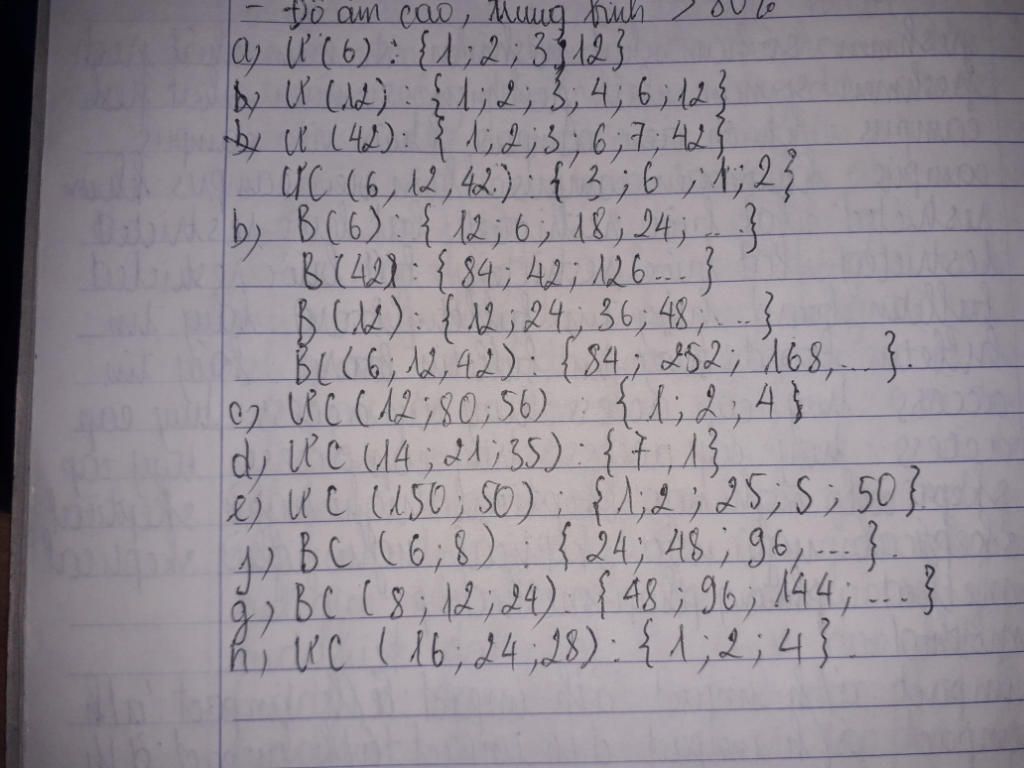 - Độ ẩm cao, trung bình > 80%
a) Ư(6) : {1 ; 2 ; 3 ; 12}
b) Ư(12) : {1 ; 2 ; 3, 4 ; 6 ; 12}
b) Ư(42) : {1 ; 2 ; 3 ; 6 ; 7, 42}
ƯC (6, 12, 42) : {3 ; 6 , 1, 2}
b) B(6) : {12 ; 6 , 18 ; 24 ; ...}
B(42) : {84 ; 42 ; 126 ...}
B(12) : {12 ; 24 , 36 ; 48, ...}
BC (6 ; 12, 42) : {84 ; 252 ; 168, ...}.
c) ƯC (12 ; 80 ; 56) {1 ; 2 ; 4}
d, ƯC (14 ; 21 ; 35) : {7, 1}
e) ƯC (150 ; 50) : {1 ; 2 ; 25 ; 5 ; 50}.
f) BC (6 ; 8) : {24 ; 48 ; 96, ...}.
g) BC (8 ; 12 ; 24) : {48 ; 96 ; 144 ; ...}
h, ƯC (16 ; 24 ; 28) : {1 ; 2 ; 4}.